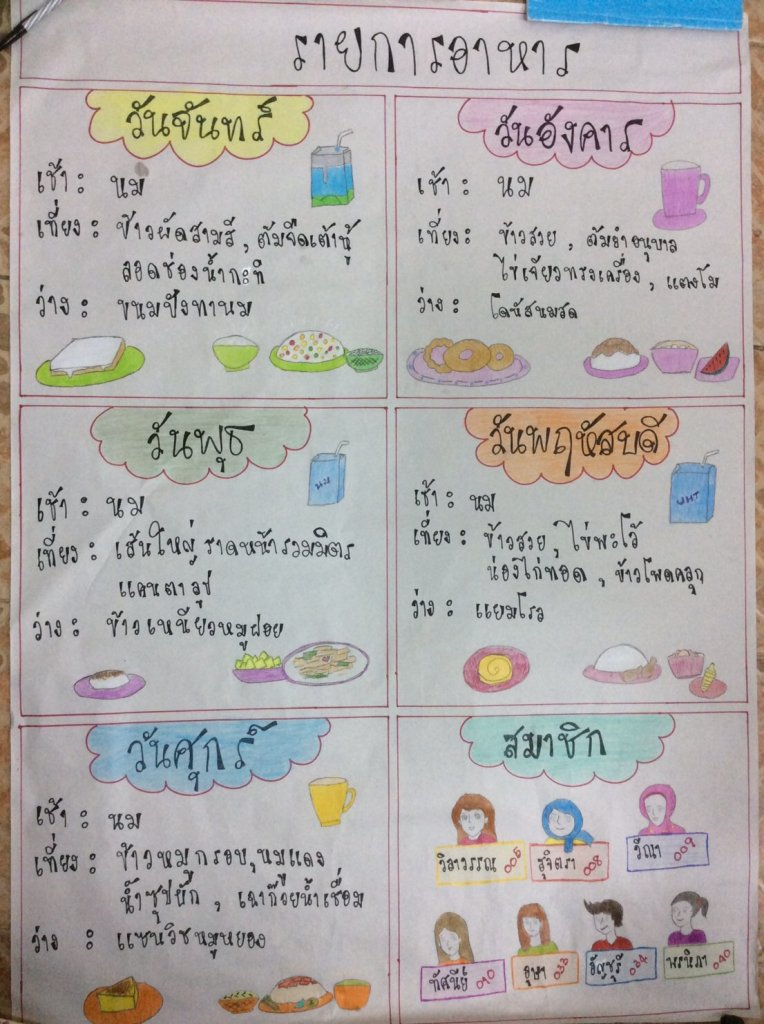 รายการอาหาร
วันจันทร์
เช้า : นม
เที่ยง : ข้าวผัดสามสี , ต้มจืดเต้าหู้
ลอดช่องน้ำกะทิ
ว่าง : ขนมปังทานม
วันอังคาร
เช้า : นม
เที่ยง : ข้าวสวย , ต้มยำอนุบาล
ไข่เจียวทรงเครื่อง , แตงโม
ว่าง : โดนัสนมสด
วันพุธ
เช้า : นม
เที่ยง : เส้นใหญ่ราดหน้ารวมมิตร
แคนตาลูป
ว่าง : ข้าวเหนียวหมูฝอย
นม
วันพฤหัสบดี
เช้า : นม
เที่ยง : ข้าวสวย , ไข่พะโล้
น่องไก่ทอด , ข้าวโพดคลุก
ว่าง : แยมโรล
UHT
วันศุกร์
เช้า : นม
เที่ยง : ข้าวหมูกรอบ,หมูแดง
น้ำซุปผัก , เฉาก๊วยน้ำเชื่อม
ว่าง : แซนวิชหมูหยอง
สมาชิก
วิลาวรรณ 005
สุจิตรา 008
วีณา 009
ทัศนีย์ 010
อุษา 033
ธัญชุรี 034
พรนิภา 040